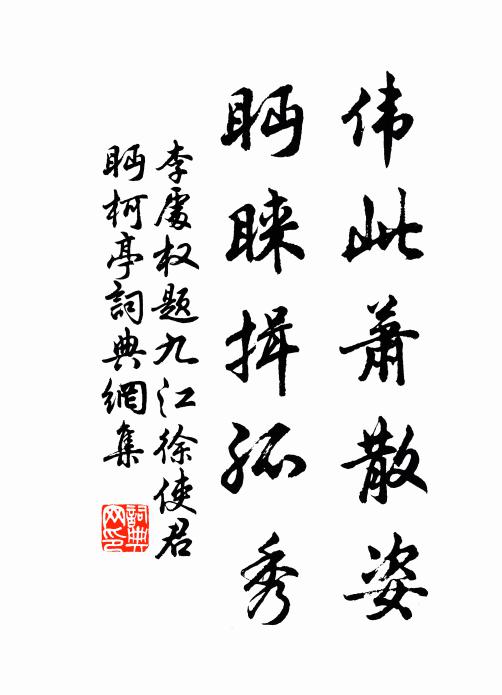 伟此萧散姿
眄睐揖孤秀
李处权题九江徐使君
眄柯亭词典网集
词典网印